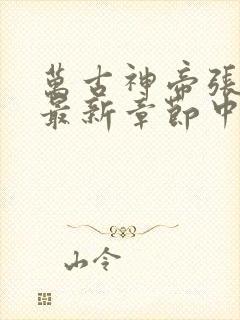 萬古神帝張
最新章節中
山令